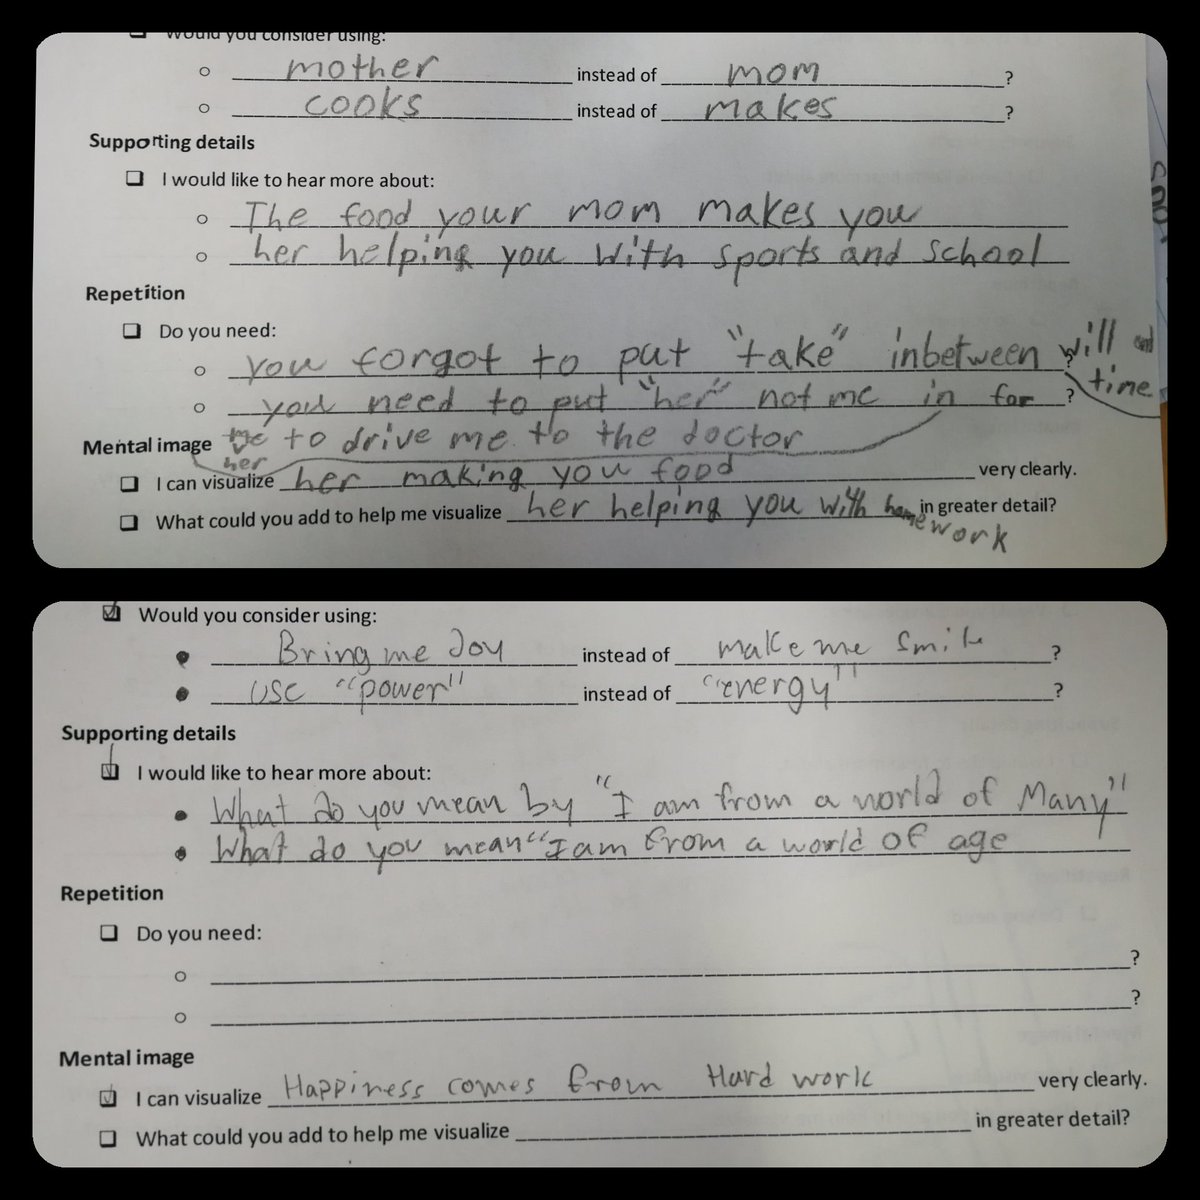 Would you consider using:
mother instead of mom ?
cooks instead of makes ?
Supporting details
I would like to hear more about:
The food your mom makes you
her helping you with sports and school
Repetition
Do you need:
you forgot to put "take" inbetween will and time ?
you need to put "her" not me in for ?
me to drive me to the doctor
her
Mental image
I can visualize her making you food very clearly.
What could you add to help me visualize her helping you with homework in greater detail?
Would you consider using:
Bring me Joy instead of make me smile ?
use "power" instead of "energy" ?
Supporting details
I would like to hear more about:
What do you mean by "I am from a world of Many"
What do you mean "I am from a world of age
Repetition
Do you need:
?
?
Mental image
I can visualize Happiness comes from Hard work very clearly.
What could you add to help me visualize in greater detail?